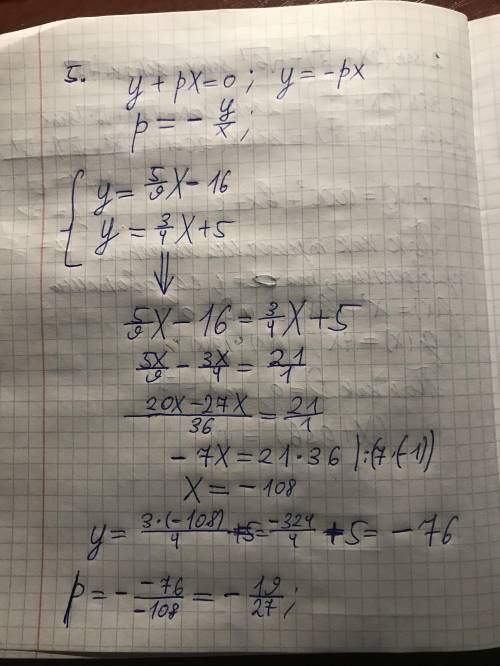 5. y + px = 0; y = -px
p = - y/x;
{ y = 5/9 x - 16
y = 3/4 x + 5
⇓
5/9 x - 16 = 3/4 x + 5
5x/9 - 3x/4 = 21/1
20x - 27x/36 = 21/1
- 7x = 21 · 36 | :(7·(-1))
x = -108
y = 3·(-108)/4 + 5 = -324/4 + 5 = - 76
p = - -76/-108 = - 19/27;